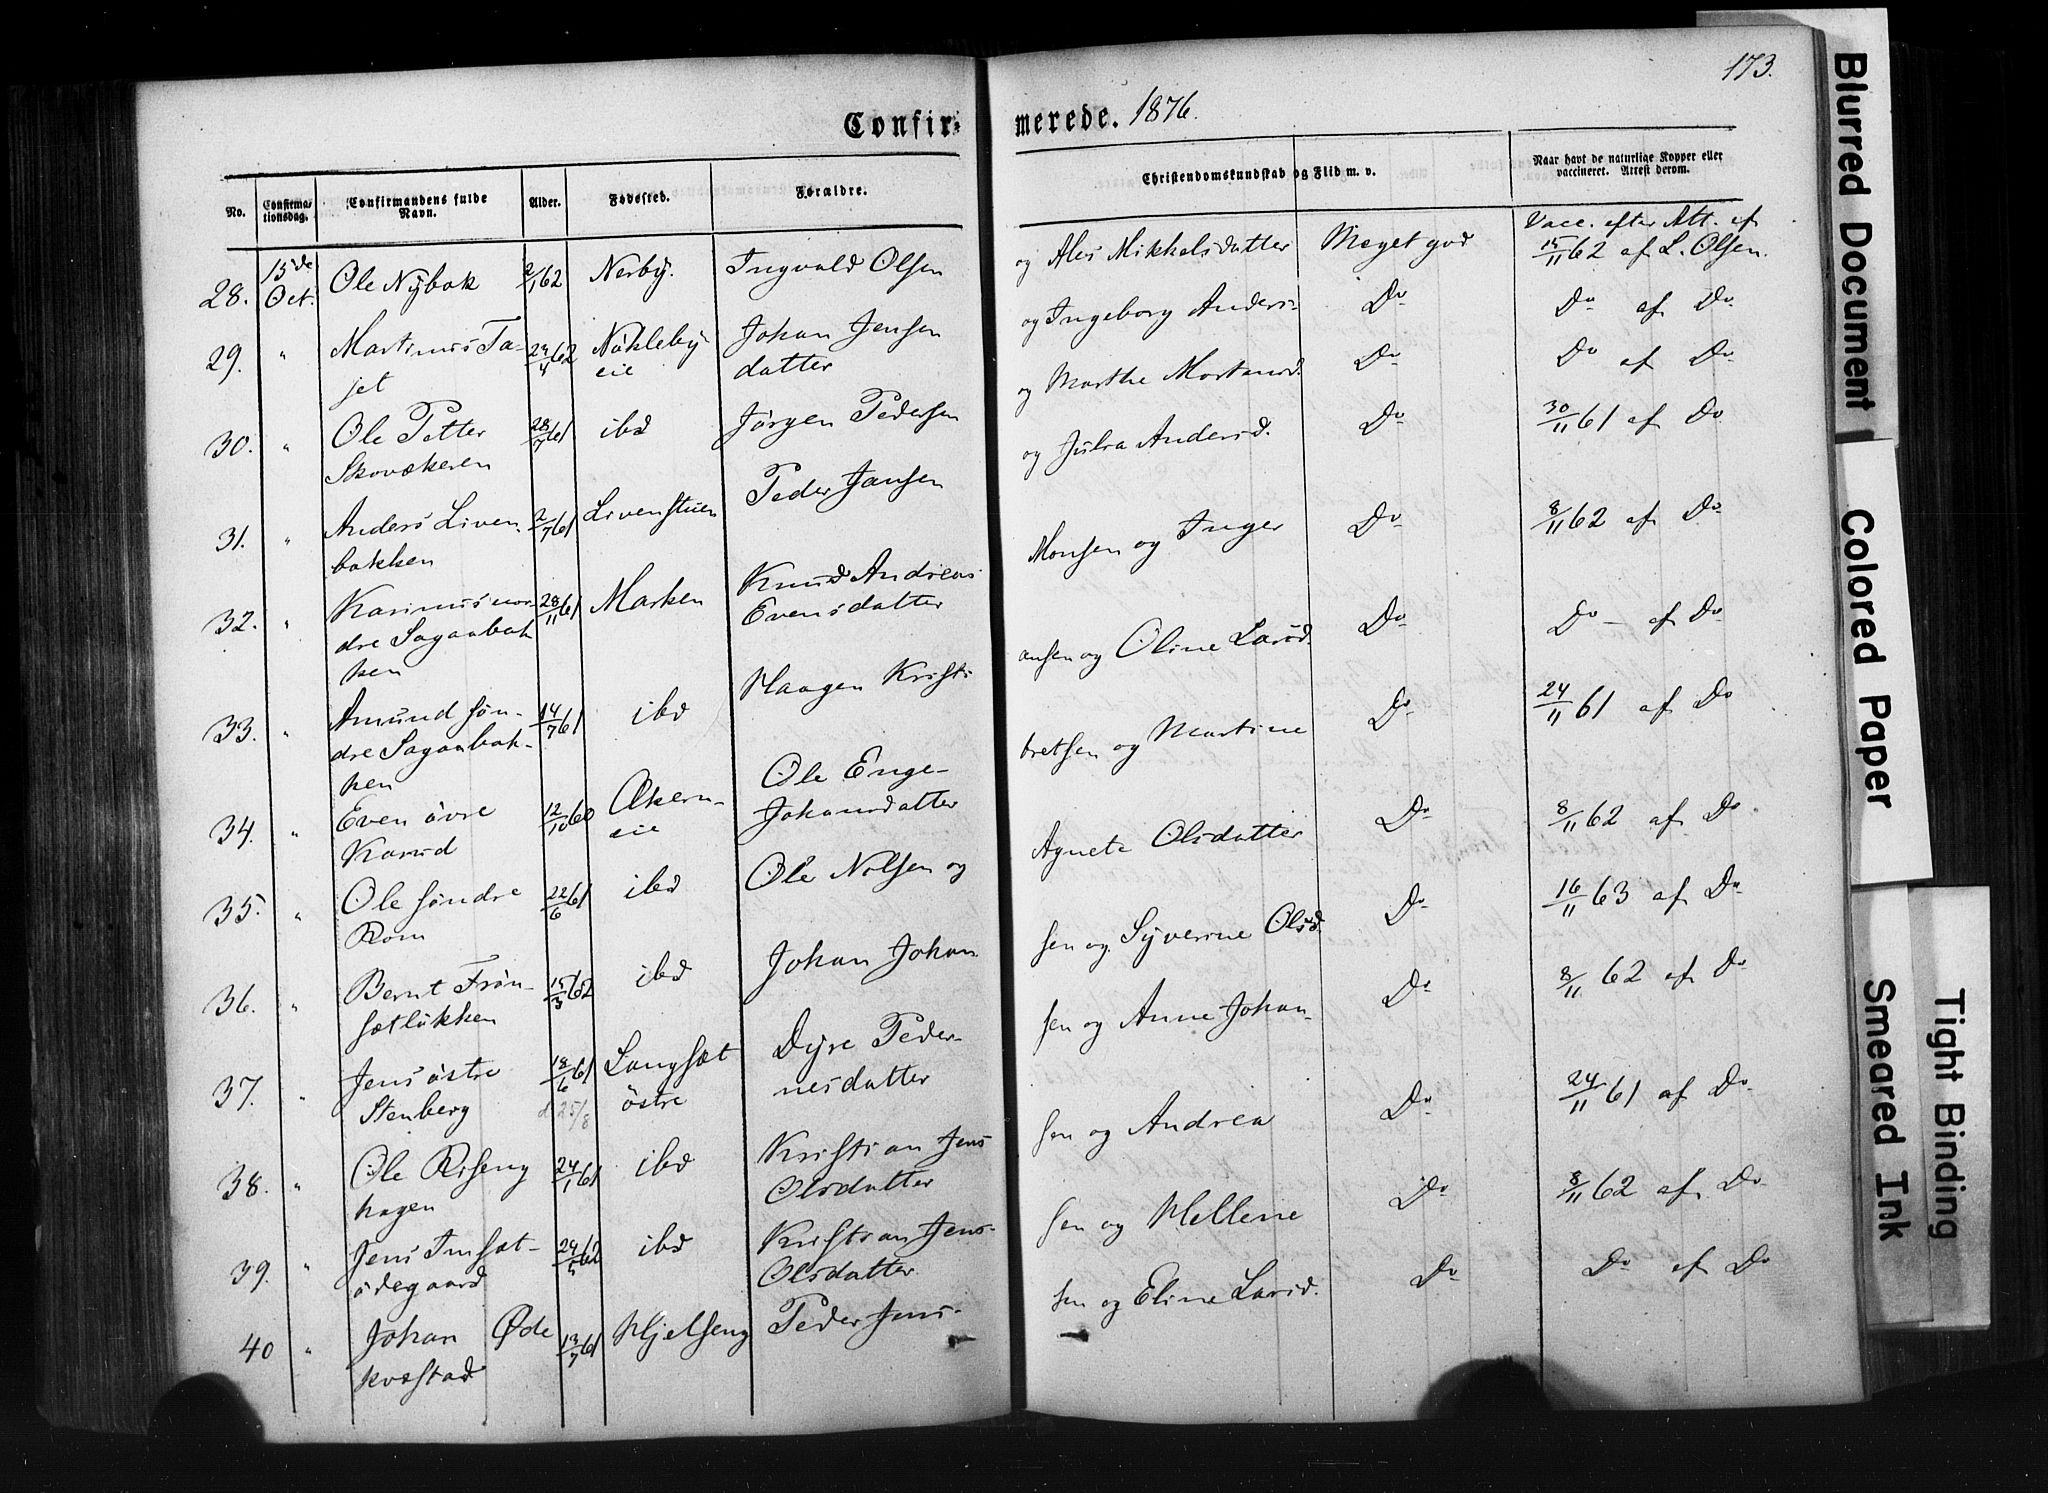 173.
Confir-
merede. 1876.
No.
Confirma-
tionsdag.
Confirmandens fulde
Navn.
Alder.
Fødested.
Forældre.
Christendomskundskab og Flid m. v.
Naar havt de naturlige Kopper eller
vaccineret. Attest derom.
28. 15de Oct. Ole Nybak 2/1 62 Nerby. Ingvald Olsen og Alis Mikkelsdatter Meget god Vacc. efter Att. af
15/11 62 af L. Olsen.
29. " Martinus Ta- 24/4 62 Nökleby Johan Jensen og Ingeborg Anders- Do Do af Do
jet eie datter
30. " Ole Petter 28/7 61 ibd Jörgen Pedersen og Marthe Mortensd. Do Do af Do
Skovækeren
31. " Anders Liven 2/7 61 Livenstuen Peder Jansen og Julia Andersd. Do 30/11 61 af Do
bakken
32. " Karinus nor- 28/11 61 Marken Knud Andreas Monsen og Inger Do 8/11 62 af Do
dre Saganbak Evensdatter
ken
33. " Amund søn- 14/7 61 ibd Haagen Kristi ansen og Oline Larsd. Do Do - af Do
dre Saganbak-
ken
34. " Even övre 12/10 60 Økern- Ole Enge- bretsen og Martine Do 24/11 61 af Do
Karud eie Johansdatter
35. " Ole söndre 22/6 61 ibd Ole Nilsen og Agnete Olsdatter Do 8/11 62 af Do
Rom
36. " Bernt Frön- 15/3 62 ibd Johan Johan sen og Syverine Olsd. Do 16/11 63 af Do
sætlökken
37. " Jens østre 18/6 61 Langsæt Dyre Peder- sen og Anne Johan- Do 8/11 62 af Do
Stenberg d 25/8 østre nesdatter
38. " Ole Riseng 24/1 61 ibd Kristian Jens sen og Andrea Do 24/11 61 af Do
hagen Olsdatter
39. " Jens Imsæt- 24/5 62 ibd Kristian Jens- sen og Hellene Do 8/11 62 af Do
ödegaard Olsdatter
40 " Johan Øde 13/7 61 Hjelseng Peder Jens- sen og Eline Larsd. Do Do af Do
kvæstad
Blurred Document
Colored Paper
Smeared Ink
Tight Binding